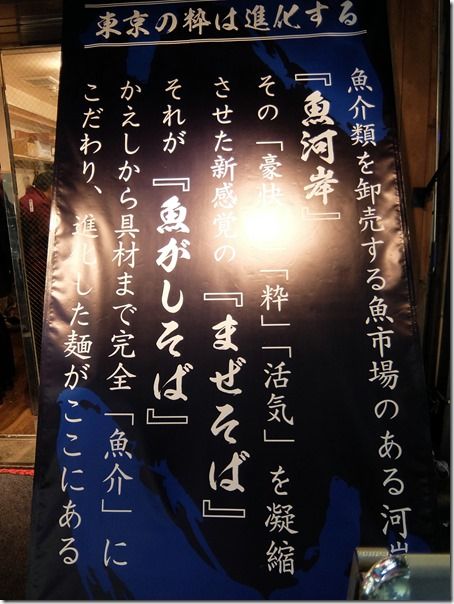 東京の粋は進化する
魚介類を卸売する魚市場のある河岸
『魚河岸』
その「豪快」「粋」「活気」を凝縮
させた新感覚の『まぜそば』
それが『魚がしそば』
かえしから具材まで完全「魚介」に
こだわり、進化した麺がここにある